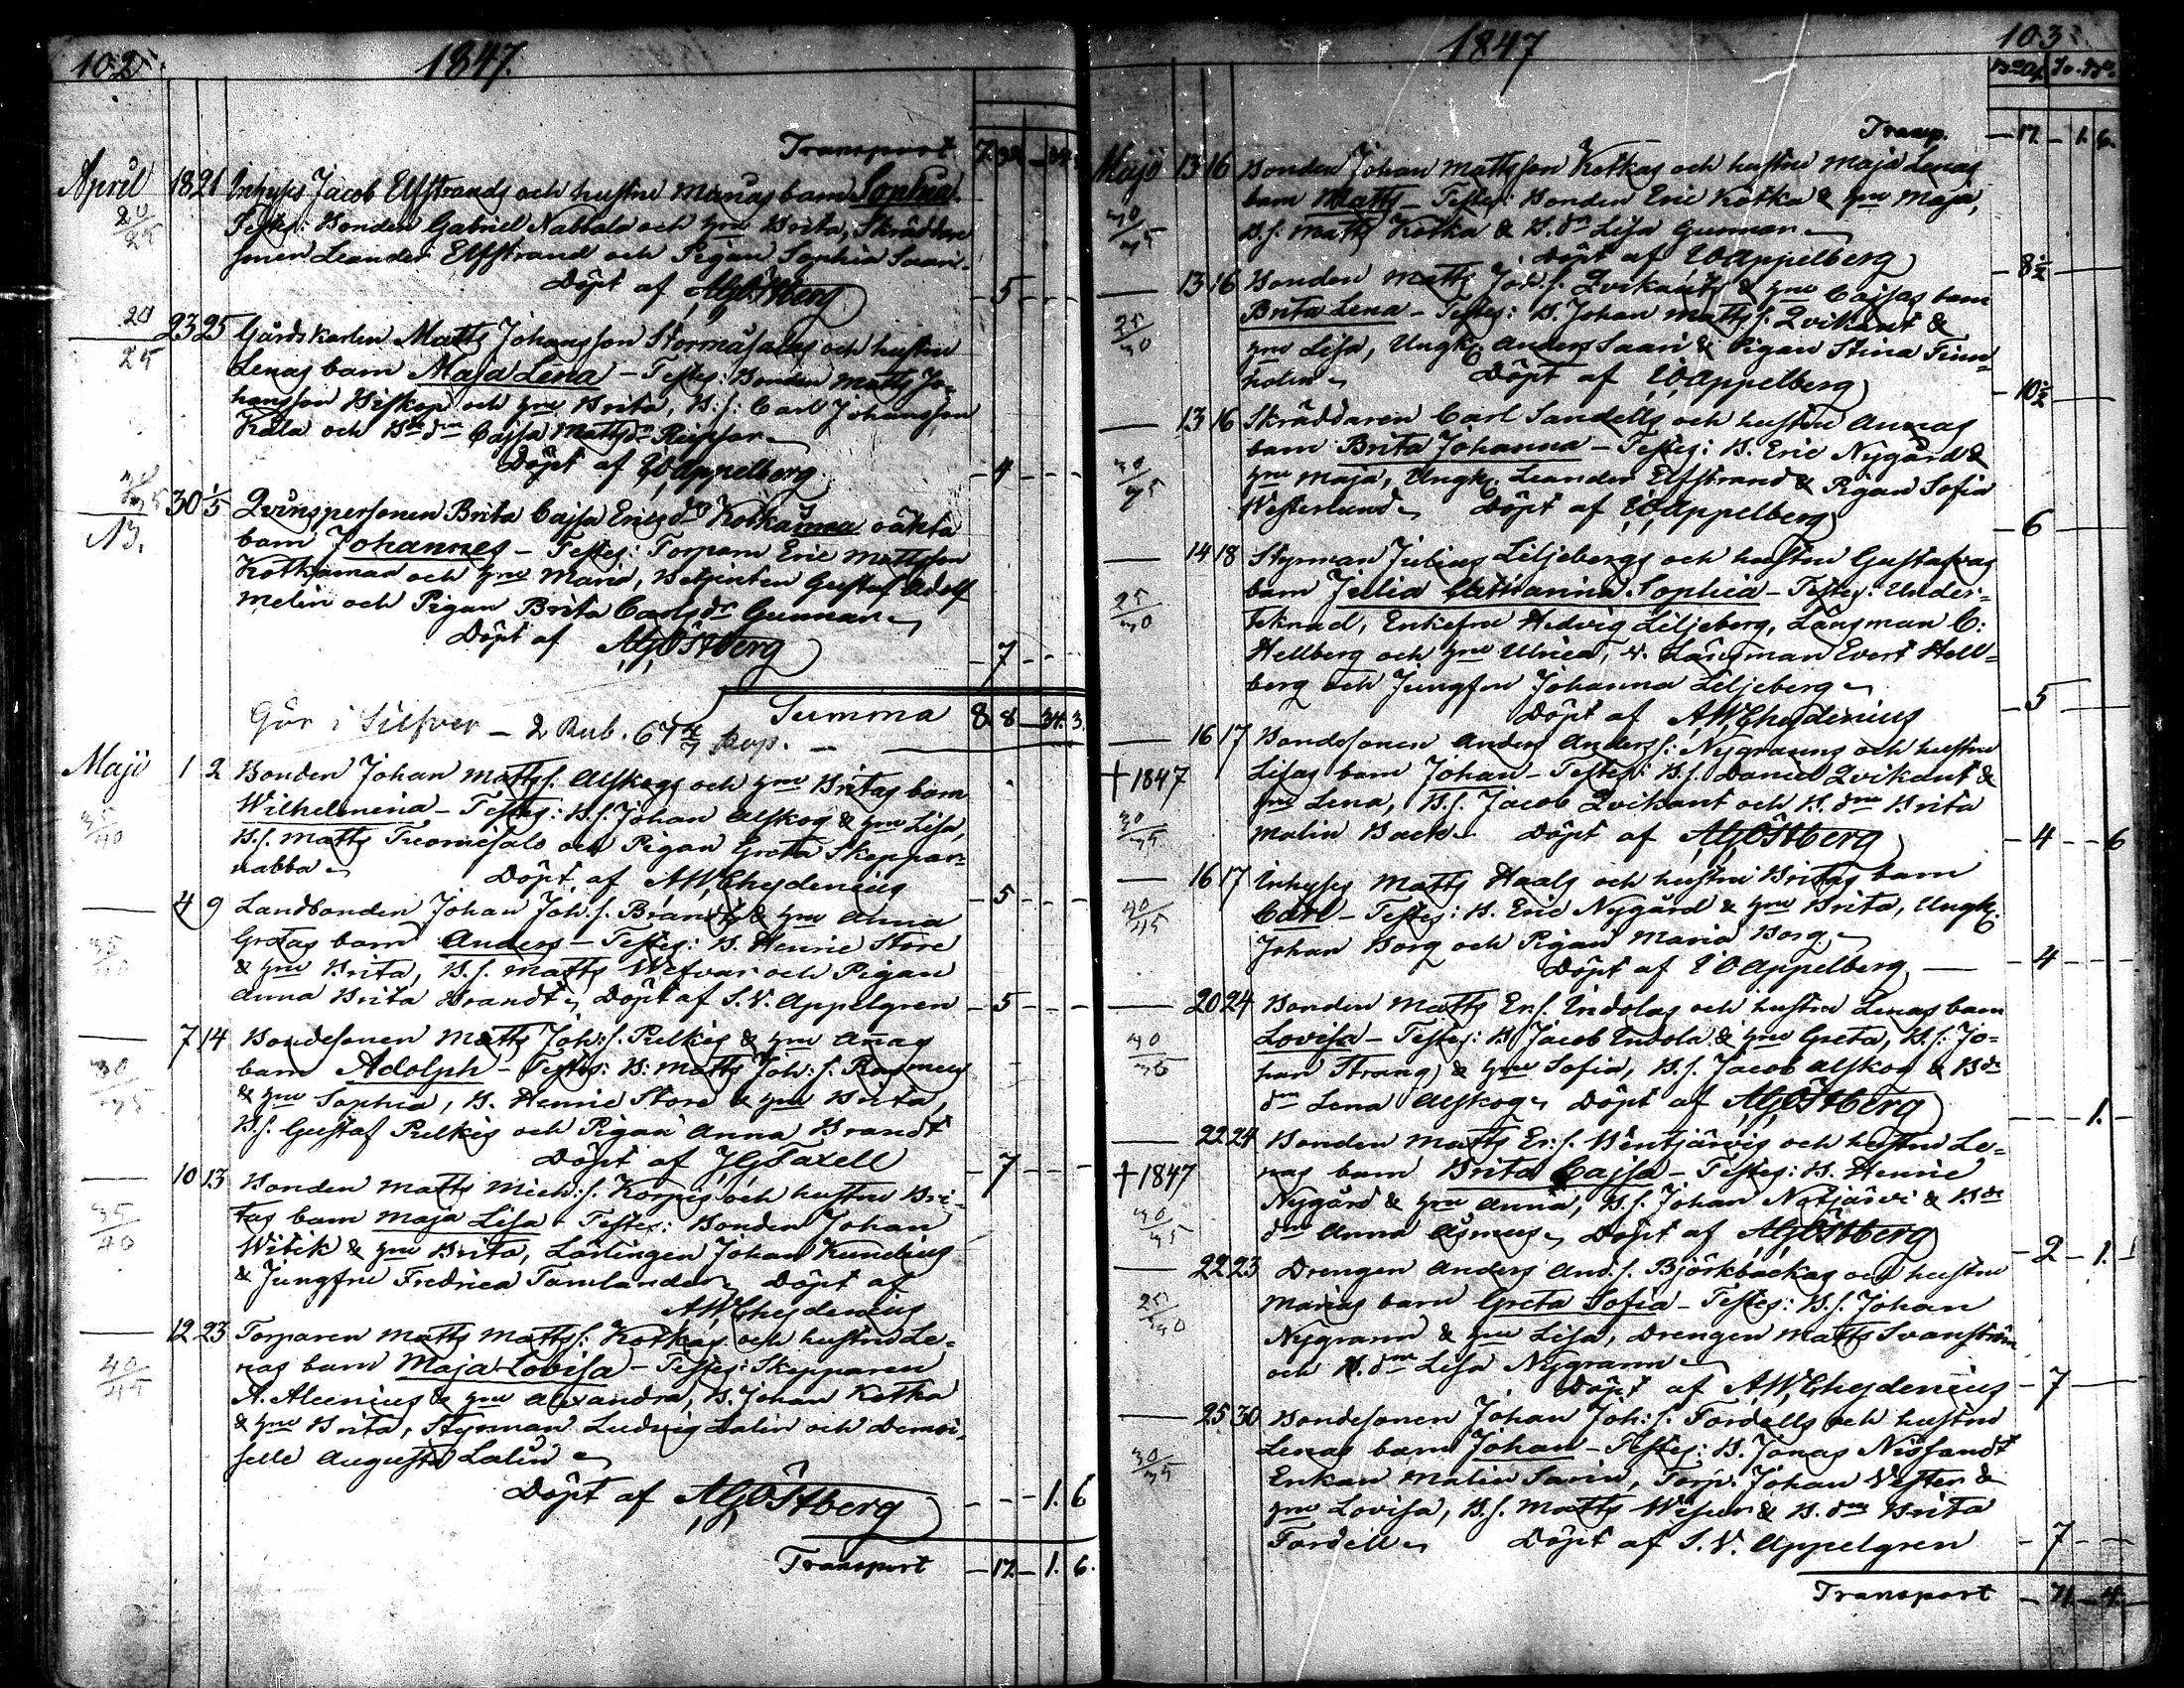 102. 1847.
Transport 7.
April 18 21 Inhyses Jacob Elfstrands och hustru Marias barn Sophia.
20/25 Testes: Bonden Gabriel Nabbala och hru Brita, Skräddare
Leander Elfstrand och Pigan Sophia
Döpt af AGÖstberg - 5 - - -
20/25 23 25 Gårdskarlen Matts Johansson och hustru
Lenas barn Maja Lena - Testes: Bonden Matts Jo-
hansson Biskop och hru Brita, B.s. Carl Johansson
Kåla och Bde dn Cajsa Mattsdr
Döpt af EOAppelberg - 4 - - -
30 1/5 Qvinspersonen Brita Cajsa Ericsdr Kotkamaa oäkta
NB. barn Johannes - Testes: Torparn Eric Mattsson
Kotkamaa och hru Maria, Betjenten Gustaf Adolf
Melin och Pigan Brita Carlsdr Gunnar
Döpt af AGÖstberg - 7 - - -
Summa 8 8 - 34. 3.
Gör i Silfver - 2 Rub. 67 4/7 kop. -
Maji 1 2 Bonden Johan Mattss. Alskogs och hru Britas barn
35/40 Wilhelmina - Testes: B.s. Johan Alskog & hru Lisa,
B.s. Matts Tuomisalo och Pigan Greta Skeppar-
nabba Döpt af AWChydenius - 5 - - -
4 9 Landbonden Johan Joh.s. Brandts & hru Anna
35/40 Gretas barn Anders - Testes: B. Henric Store
& hru Brita, B.s. Matts Wefvar och Pigan
Anna Brita Brandt Döpt af S.V. Appelgren - 5 - - -
7 14 Bondesonen Matts Joh:s. Pulkis & hru Annas
30/35 barn Adolph - Testes: B: Matts Joh:s. Rasmus
& hru Sophia, B. Henric Store & hru Brita,
B.s. Gustaf Pulkis och Pigan Anna Brandt
Döpt af JGTaxell - 7 - - -
10 13 Bonden Matts Mich:s. Korpis och hustru Bri-
35/40 tas barn Maja Lisa - Testes: Bonden Johan
Witik & hru Brita, Lärlingen Johan Kunelius
& Jungfru Fredrica Tamlander Döpt af
AWChydenius
12 23 Torparen Matts Mattss: Kotkas och hustru Le-
40/45 nas barn Maja Lovisa - Testes: Skepparen
A. Alcenius & hru Alexandra, B. Johan Kotka
& hru Brita, Styrman Ludvig Lalin och Demoi-
selle Augusta Lalin
Döpt af AGÖstberg - - - 1. 6
Transport - 17. - 1. 6.
1847 103.
Transp. - 17. - 1. 6.
Maji 13 16 Bonden Johan Mattsson Kotkas och hustru Maja Lenas
30/35 barn Matts - Testes: Bonden Eric Kotka & hru Maja,
B.s. Matts Kotka & B.dr Lisa Gunnar
Döpt af EOAppelberg - 8 1/2 -
13 16 Bonden Matts Joh.s. Qvikants & hru Cajsas barn
25/30 Brita Lena - Testes: B. Johan Mattss. Qvikant &
hru Lisa, Ungk. Anders Saari & Pigan Stina Finn-
holm Döpt af EOAppelberg - 10 1/2 -
13 16 Skräddaren Carl Sandells och hustru Annas
30/35 barn Brita Johanna - Testes: B. Eric Nygård &
hru Maja, Ungk. Leander Elfstrand & Pigan Sofia
Westerlund Döpt af EOAppelberg - 6 -
14 18 Styrman Julius Liljebergs och hustru Gustafvas
25/30 barn Julia Sophia - Testes: Under-
teknad, Enkefru Hedvig Liljeberg, Länsman C:
Hellberg och hru Ulrica, v. Länsman Evert Hell-
berg och Jungfru Johanna Liljeberg
Döpt af AWChydenius - 5 -
16 17 Bondesonen Anders Anderss: Nygranns och hustru
† 1847 Lisas barn Johan - Testes: B.s. Daniel Qvikant &
30/35 hru Lena, B.s. Jacob Qvikant och B.dn Brita
Malin Back Döpt af AGÖstberg - 4 - - 6
16 17 Inhyses Matts Haals och hustru Britas barn
40/45 Carl - Testes: B. Eric Nygård & hru Brita, Ungk.
Johan Borg och Pigan Maria Borg
Döpt af EOAppelberg - 4 - - -
20 24 Bonden Matts Er.s. Indolas och hustru Lenas barn
Lovisa - Testes: B. Jacob Indola & hru Greta, B.s: Jo-
han Strang & hru Sofia, B.s. Jacob Alskog & Bde
dn Lena Alskog Döpt af AGÖstberg - - 1. -
22 24 Bonden Matts Er:s. Wentjärvis och hustru Le-
† 1847 nas barn Brita Cajsa - Testes: B. Henric
30/35 Nygård & hru Anna, B.s. Johan & Bde
dn Anna Asmus Döpt af AGÖstberg - 2 - 1.
22 23 Drengen Anders And.s. Björkbackas och hustru
Marias barn Greta Sofia - Testes: B.s. Johan
Nygrann & hru Lisa, Drengen Matts Svanström
och B.dn Lisa Nygrann
Döpt af AWChydenius - 7 -
25 30 Bondesonen Johan Joh:s. Fordells och hustru
30/35 Lenas barn Johan - Testes: B. Jonas Nissandt
Enkan Malin Sarin, Torp. Johan Wester &
hru Lovisa, B.s. Matts & B.dn Brita
Fordell Döpt af S.V. Appelgren - 7 - -
Transport - 71. - 4. -